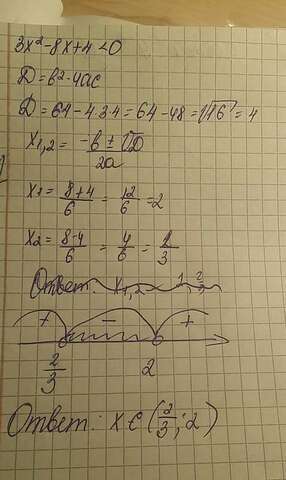 3x²-8x+4<0
D=b²-4ac
D=64-4·3·4=64-48=√16=4
x₁,₂= (-b±√D)/2a
x₁= (8+4)/6 = 12/6 =2
x₂= (8-4)/6 = 4/6 = 2/3
Ответ: x₁,₂
+ - +
2/3 2
Ответ: x∈(2/3;2)